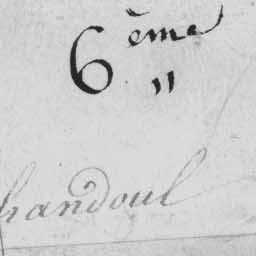 6ème "
handoul